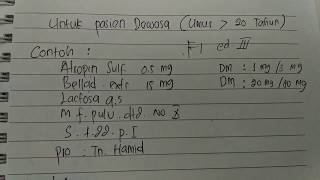 Untuk pasien Dewasa (Umur > 20 Tahun)
Contoh : F1 ed III
Atropin Sulf 0.5 mg DM : 1 mg / 3 mg
Bellad. extr 15 mg DM : 20 mg / 80 mg
Lactosa q.s
M f. pulv. dtd. No X
S. t.dd. p. I
pro : Tn. Hamid